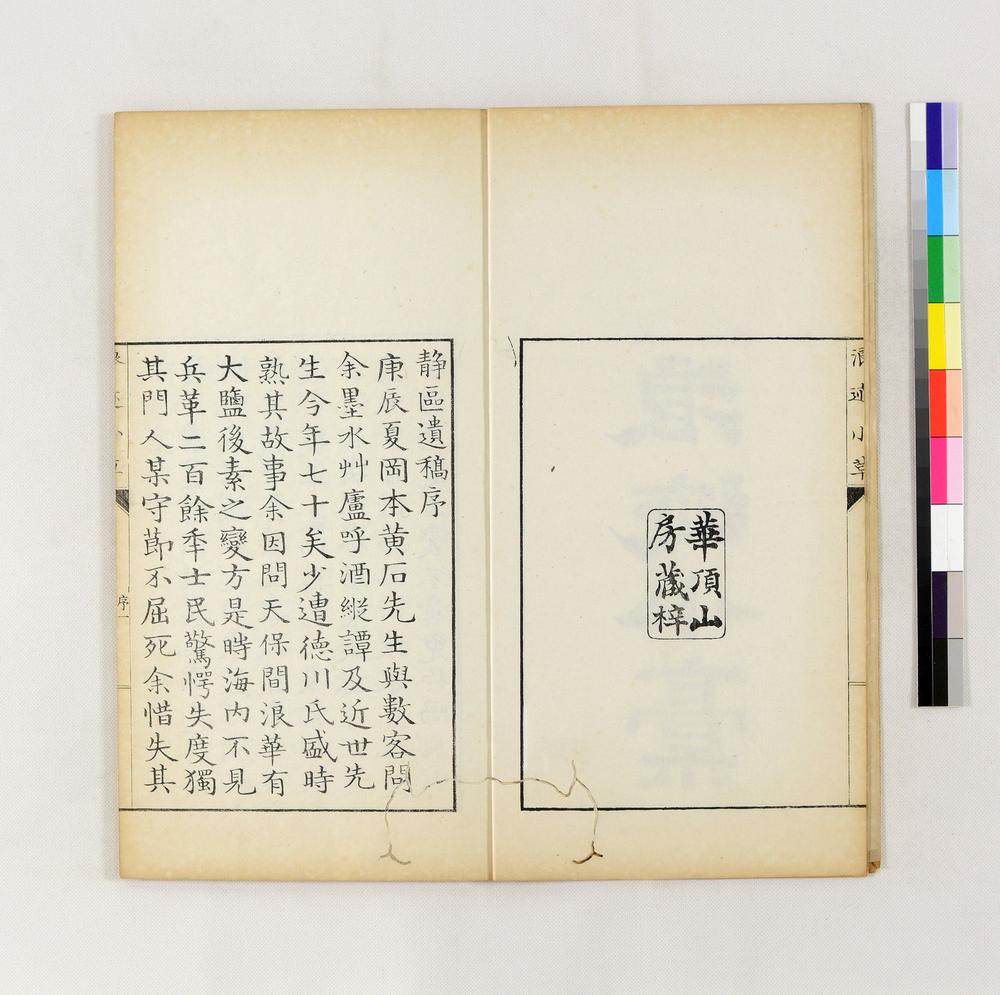 華頂山
房藏梓
浪迹小草
靜區遺稿序
庚辰夏岡本黄石先生與數客問
余墨水艸廬呼酒縱譚及近世先
生今年七十矣少遭德川氏盛時
熟其故事余因問天保間浪華有
大鹽後素之變方是時海内不見
兵革二百餘年士民驚愕失度獨
其門人某守節不屈死余惜失其
序一